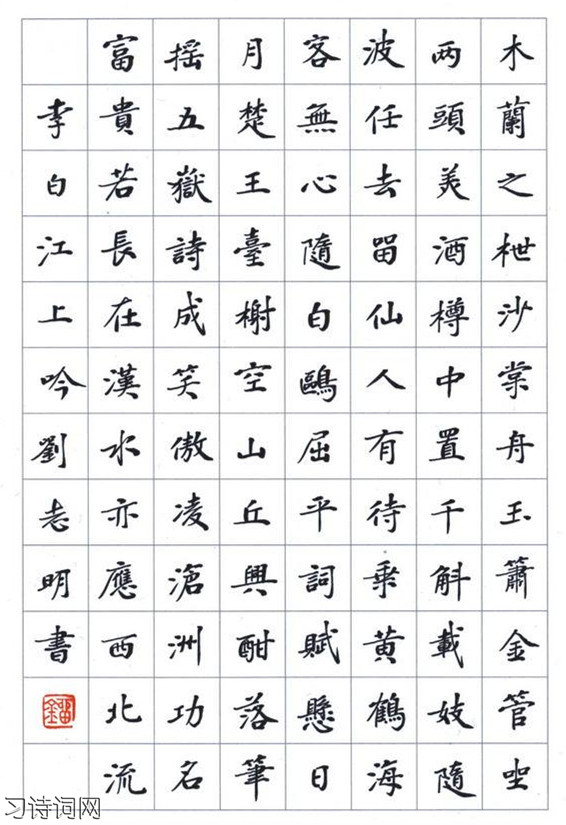 木蘭之枻沙棠舟玉簫金管坐
两頭美酒樽中置千斛載妓隨
波任去留仙人有待乘黃鶴海
客無心隨白鷗屈平詞賦懸日
月楚王臺榭空山丘興酣落筆
摇五嶽詩成笑傲凌滄洲功名
富貴若長在漢水亦應西北流
李白江上吟劉志明書
习诗词网